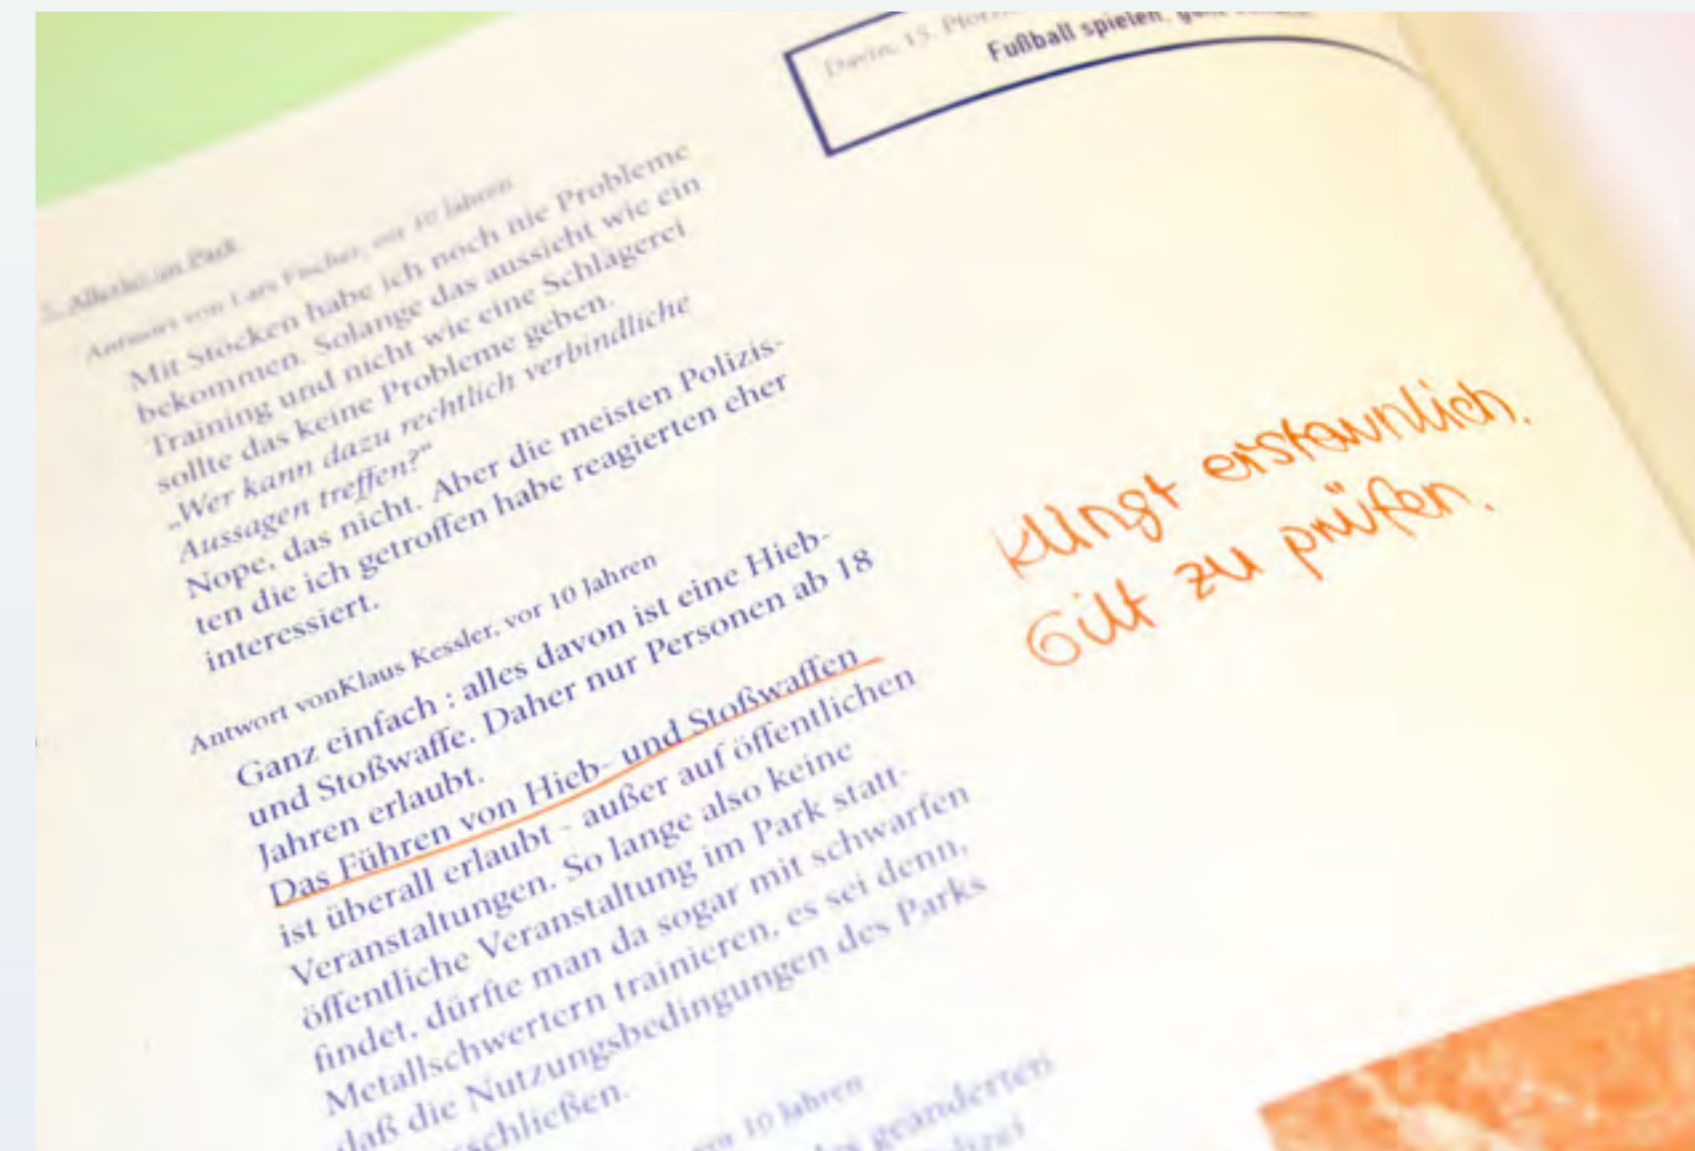 Davin, 15, Pforzh
Fußball spielen, ganz
5. Allerlei im Park
Antwort von Lars Fischer, vor 10 Jahren
Mit Stöcken habe ich noch nie Probleme
bekommen. Solange das aussieht wie ein
Training und nicht wie eine Schlägerei
sollte das keine Probleme geben.
„Wer kann dazu rechtlich verbindliche
Aussagen treffen?“
Nope, das nicht. Aber die meisten Polizis-
ten die ich getroffen habe reagierten eher
interessiert.
Antwort vonKlaus Kessler, vor 10 Jahren
Ganz einfach : alles davon ist eine Hieb-
und Stoßwaffe. Daher nur Personen ab 18
Jahren erlaubt.
Das Führen von Hieb- und Stoßwaffen
ist überall erlaubt - außer auf öffentlichen
Veranstaltungen. So lange also keine
öffentliche Veranstaltung im Park statt-
findet, dürfte man da sogar mit schwarfen
Metallschwertern trainieren, es sei denn,
daß die Nutzungsbedingungen des Parks
schließen.
vor 10 Jahren
des geänderten
klingt erstaunlich.
Gilt zu prüfen.